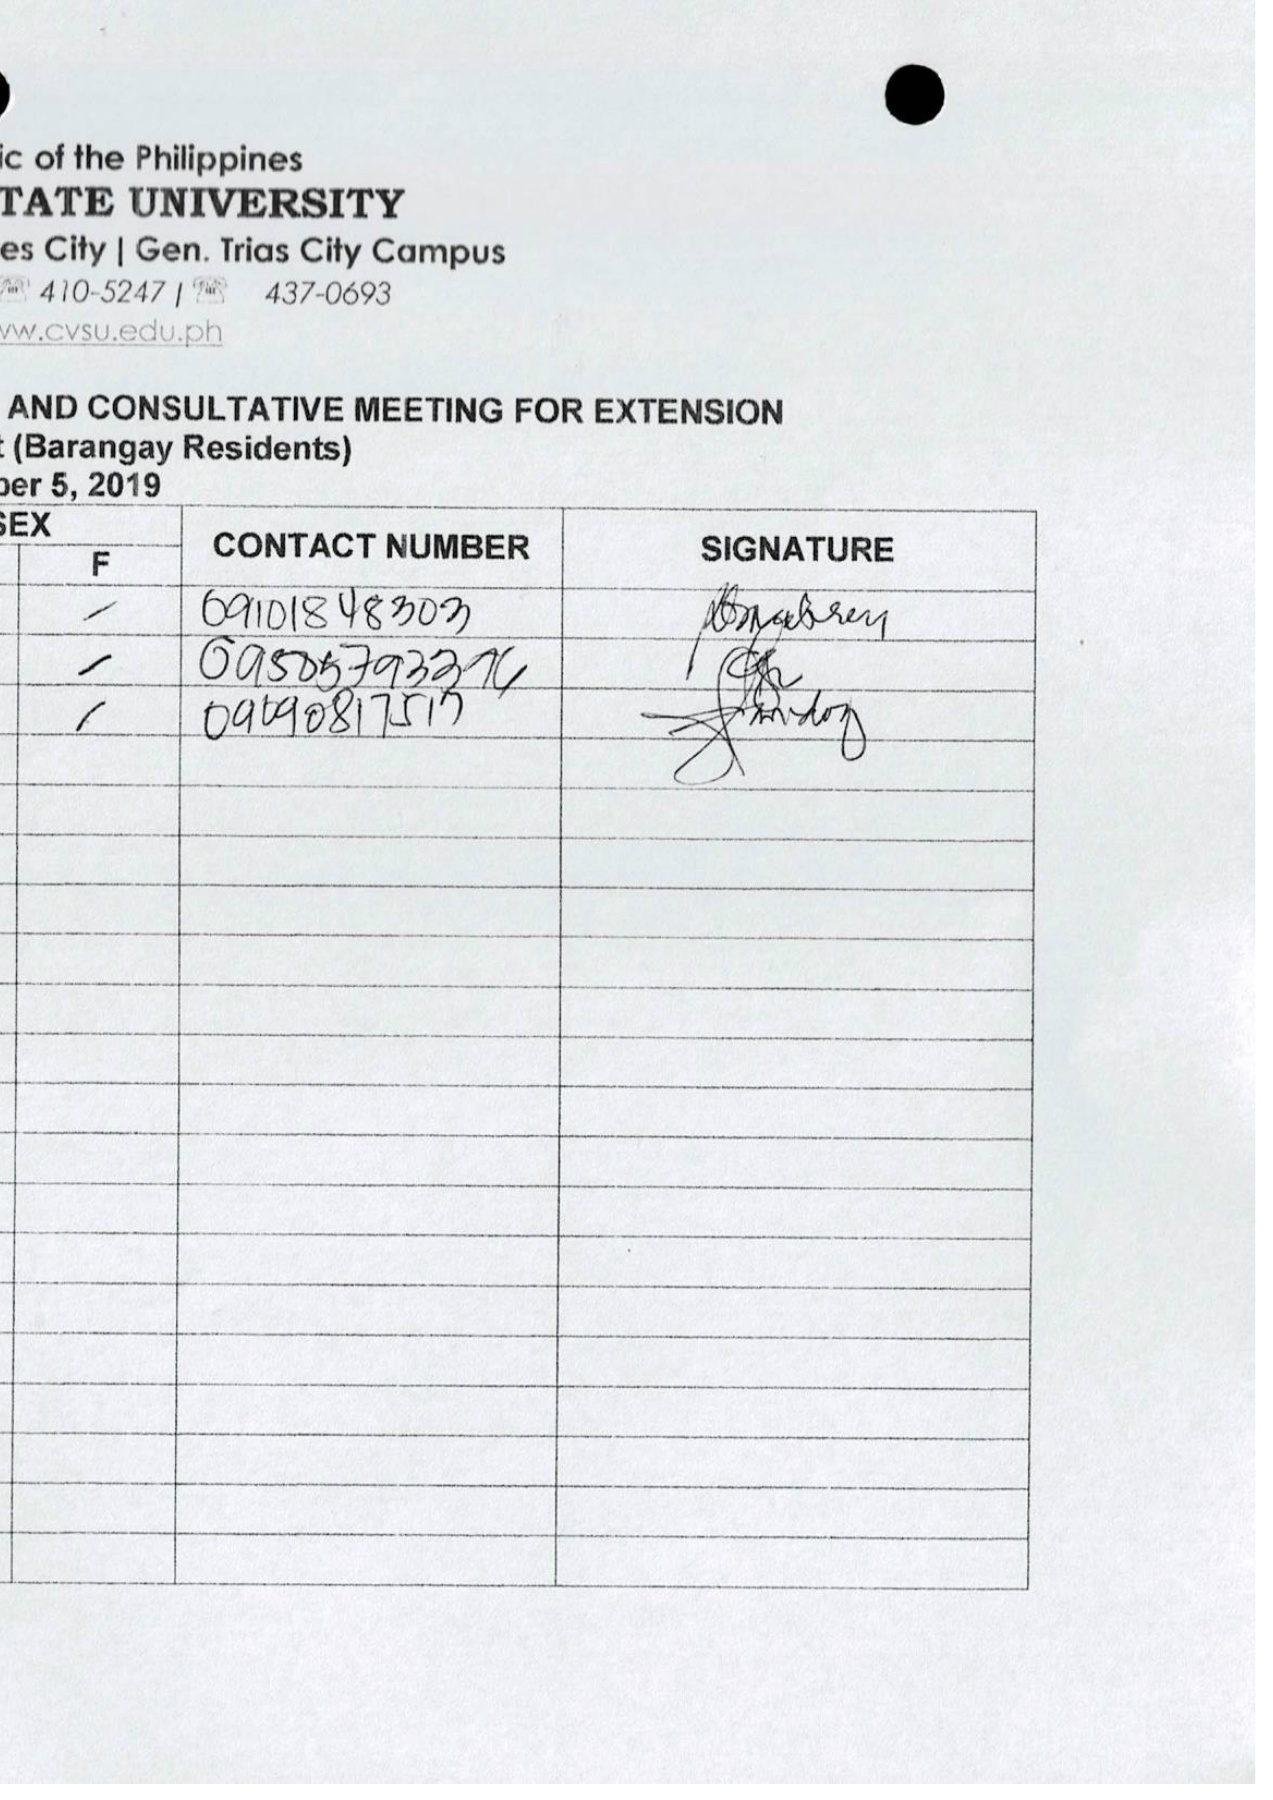 ic of the Philippines
TATE UNIVERSITY
es City | Gen. Trias City Campus
☏ 410-5247 | ☏ 437-0693
ww.cvsu.edu.ph
AND CONSULTATIVE MEETING FOR EXTENSION
t (Barangay Residents)
ber 5, 2019
SEX CONTACT NUMBER SIGNATURE
F
/ 09101848303
/
/ 09090817517